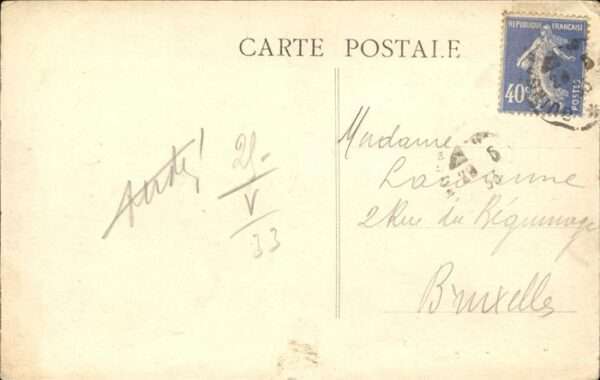 CARTE POSTALE
REPUBLIQUE FRANÇAISE
40c
POSTES
21
V
33
Madame
2 Rue du Béguinage
Bruxelles